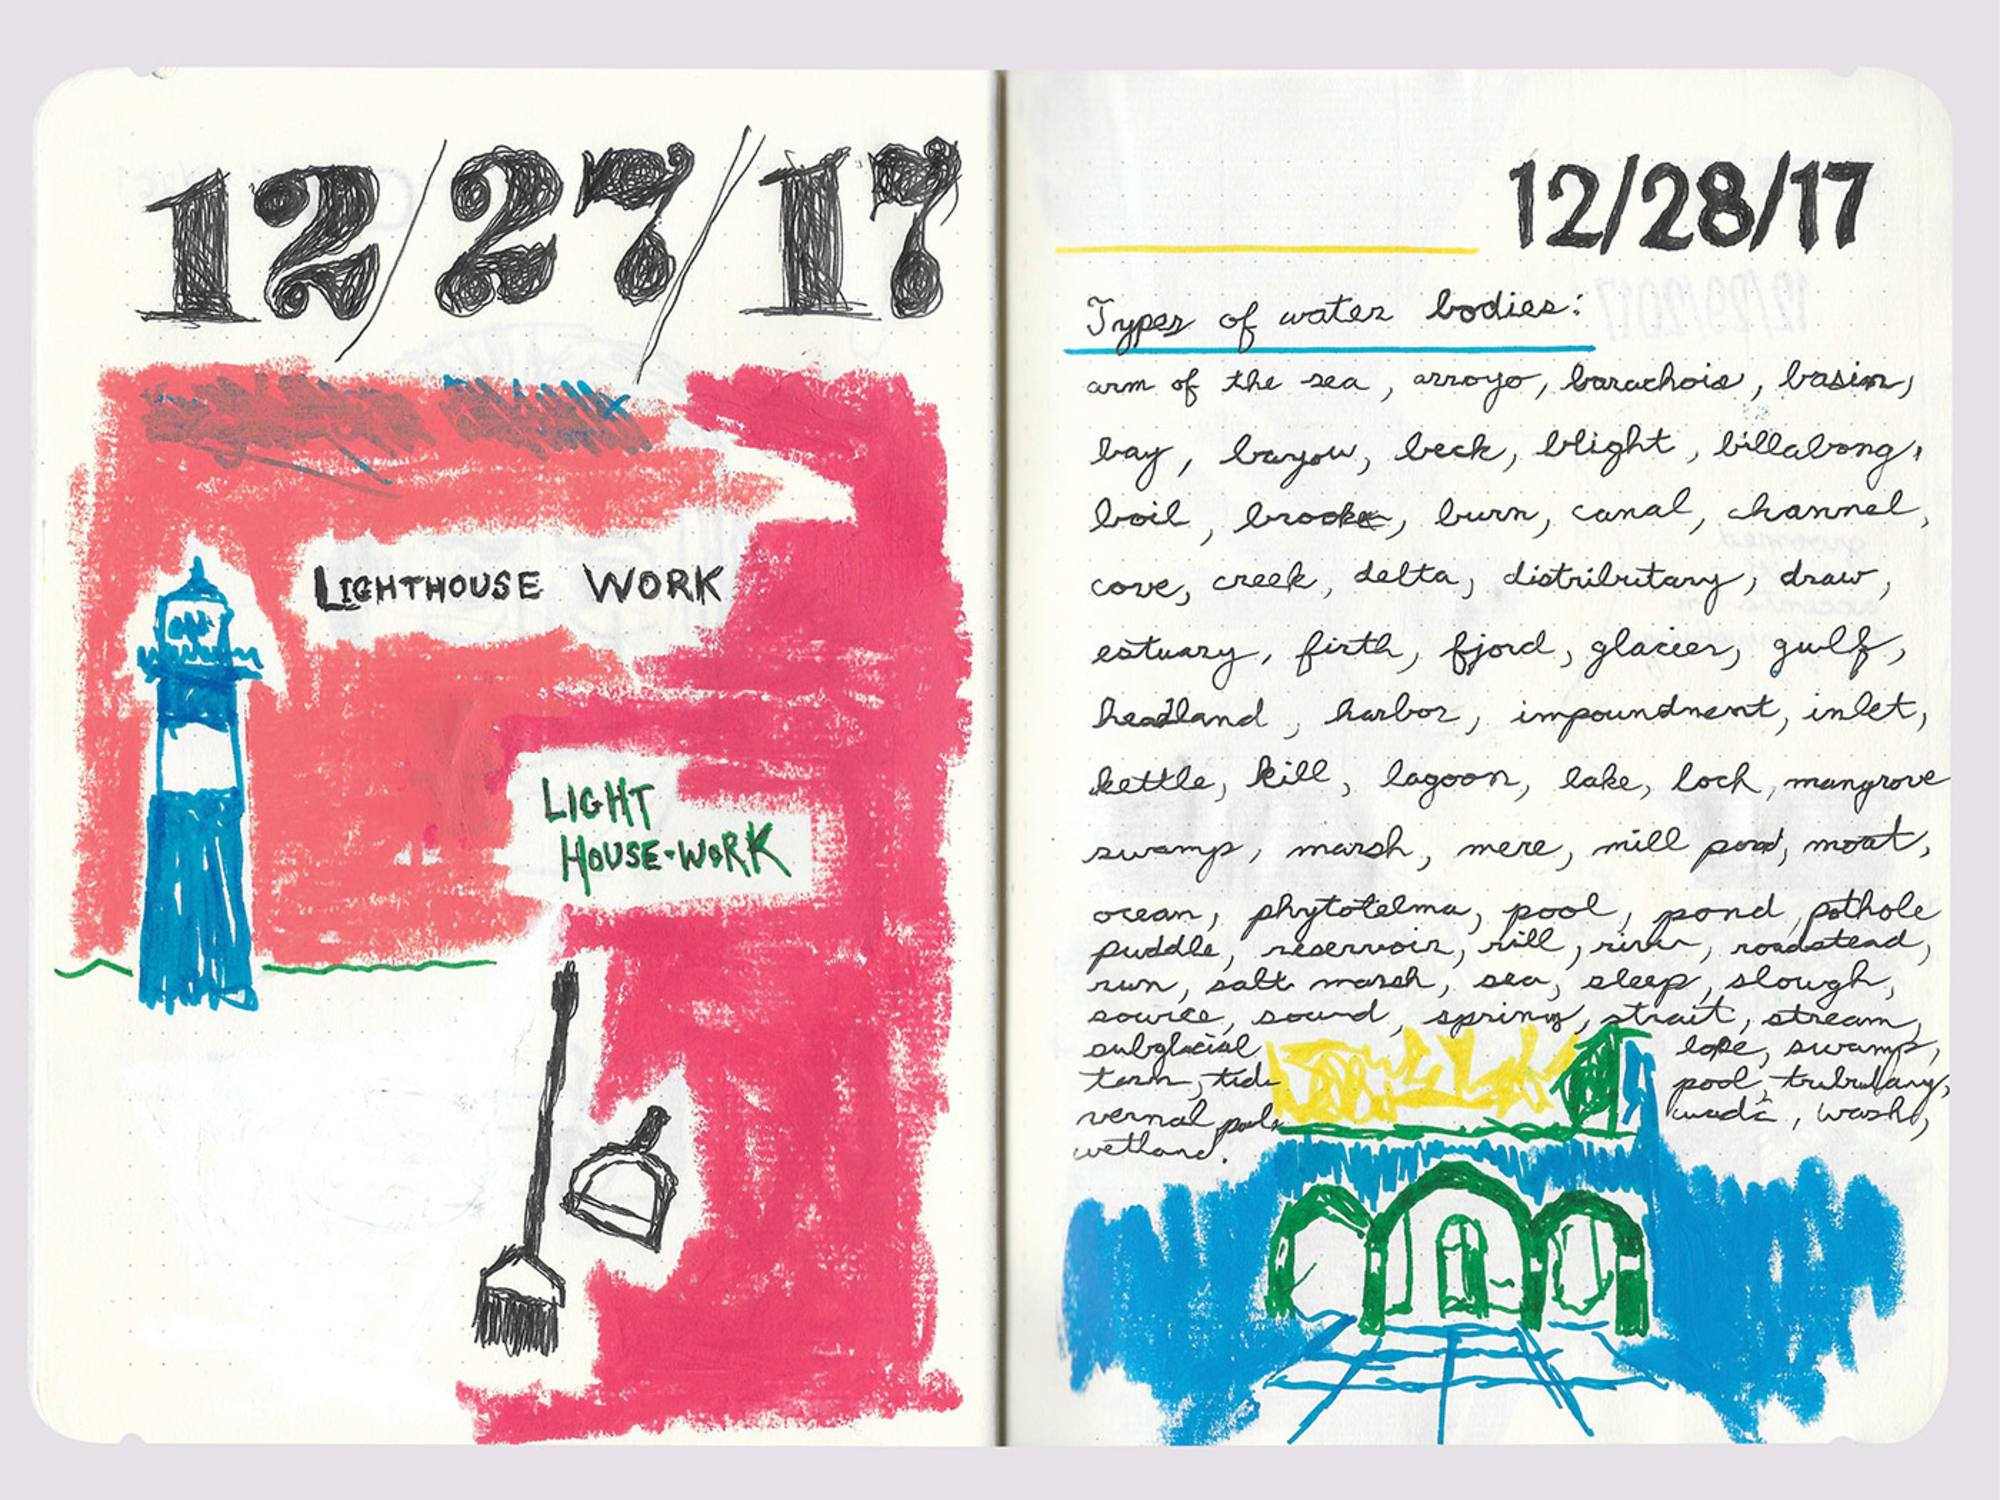 12/27/17
LIGHTHOUSE WORK
LIGHT
HOUSE-WORK
12/28/17
Types of water bodies:
arm of the sea, arroyo, barachois, basin,
bay, bayou, beck, blight, billabong,
boil, brook, burn, canal, channel,
cove, creek, delta, distributary, draw,
estuary, firth, fjord, glacier, gulf,
headland, harbor, impoundment, inlet,
kettle, kill, lagoon, lake, loch, mangrove
swamp, marsh, mere, mill pond, moat,
ocean, phytotelma, pool, pond, pothole
puddle, reservoir, rill, river, roadstead,
run, salt marsh, sea, sleep, slough,
source, sound, spring, strait, stream,
subglacial lope, swamp,
tarn, tide pool, tributary,
vernal pools wash,
wetland.